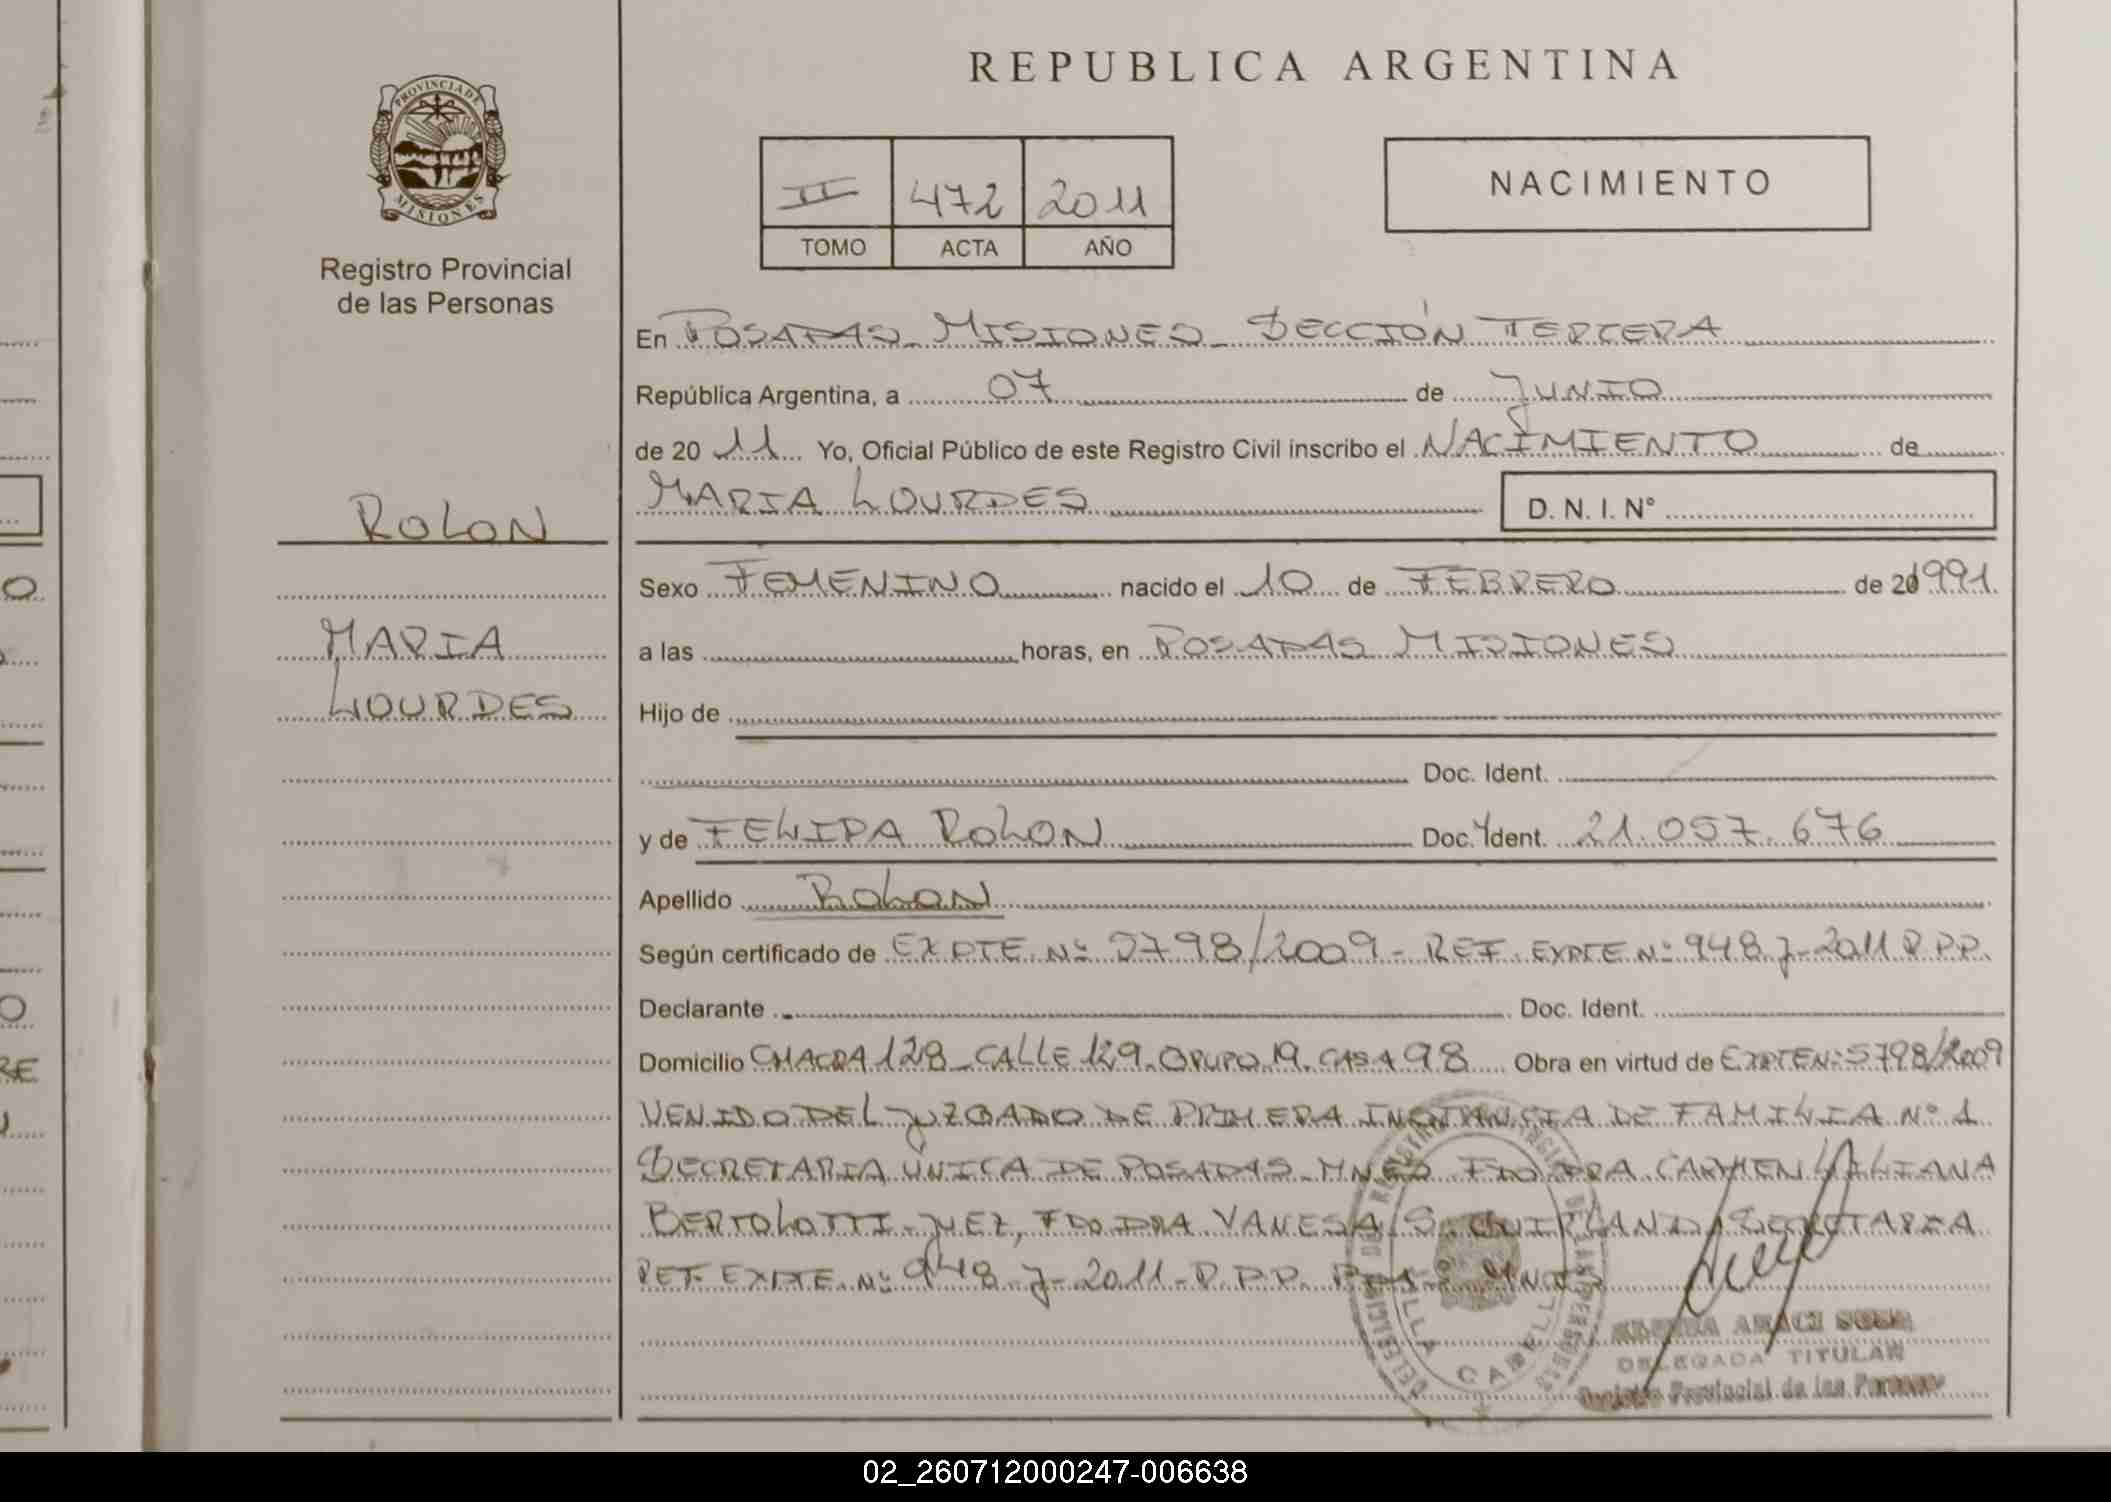 REPUBLICA ARGENTINA
PROVINCIA DE
MISIONES
Registro Provincial
de las Personas
II 472 2011
TOMO ACTA AÑO
NACIMIENTO
En POSADAS MISIONES SECCIÓN TERCERA
República Argentina, a 07 de JUNIO
de 20 11 Yo, Oficial Público de este Registro Civil inscribo el NACIMIENTO de
MARIA LOURDES
D. N. I. Nº
ROLON
MARIA
LOURDES
Sexo FEMENINO nacido el 10 de FEBRERO de 20 1991.
a las horas, en POSADAS MISIONES
Hijo de
Doc. Ident.
y de FELIPA ROLON Doc. Ident. 21.057.676
Apellido ROLON
Según certificado de EXPTE. Nº 5798/2009 - REF. EXPTE Nº 948-J-2011 R.P.P.
Declarante Doc. Ident.
Domicilio CHACRA 128 - CALLE 129. GRUPO 19. CASA 98 Obra en virtud de EXPTE Nº 5798/2009
VENIDO DEL JUZGADO DE PRIMERA INSTANCIA DE FAMILIA Nº 1
SECRETARIA UNICA DE POSADAS - MNES FDO DRA. CARMEN LILIANA
BERTOLOTTI - JUEZ, FDO DRA VANESA S. SECRETARIA
REF. EXPTE. Nº 948 J - 2011 - R.P.P.
VILLA CABELLO
DELEGADA TITULAR
Registro Provincial de las Personas
02_260712000247-006638